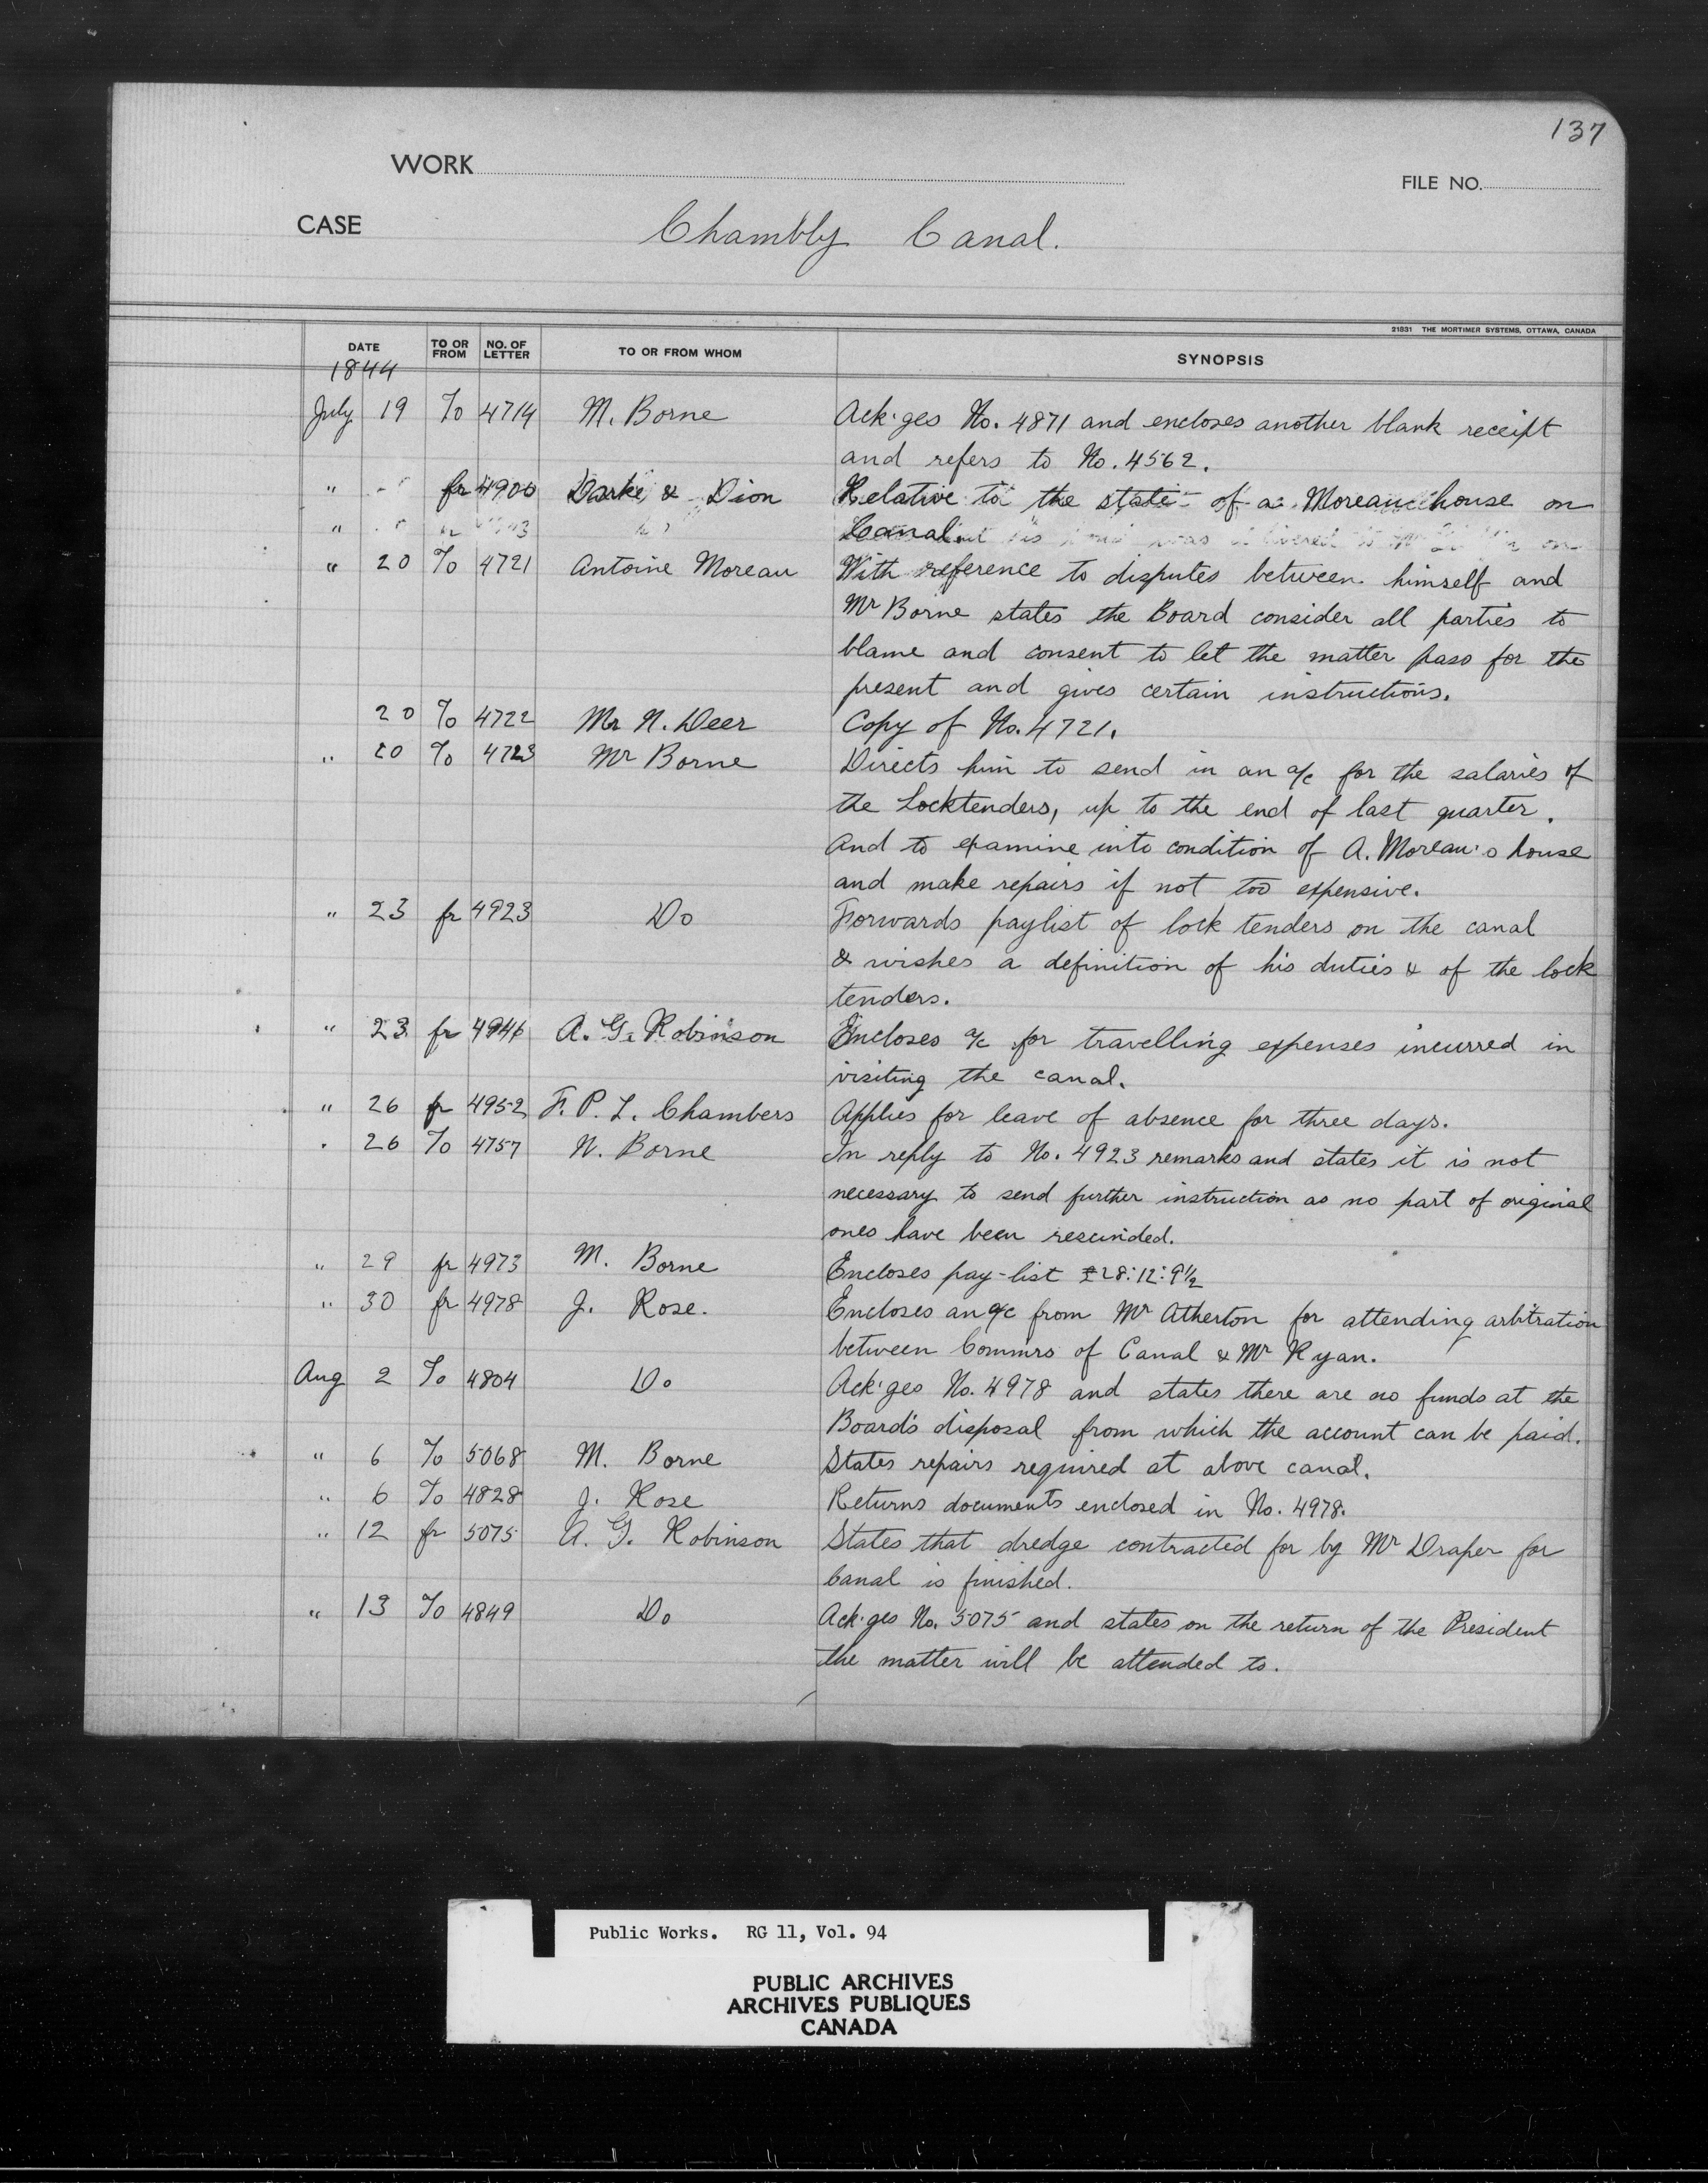 137
WORK
FILE NO.
CASE
Chambly Canal.
21831 THE MORTIMER SYSTEMS, OTTAWA, CANADA
DATE TO OR FROM NO. OF LETTER TO OR FROM WHOM SYNOPSIS
1844
July 19 To 4714 M. Borne Ack'ges No. 4871 and encloses another blank receipt
and refers to No. 4562.
" fr 4900 Darke & Dion Relative to the state of a Moreau house on
" Canal
" 20 To 4721 Antoine Moreau With reference to disputes between himself and
Mr Borne states the Board consider all parties to
blame and consent to let the matter pass for the
present and gives certain instructions.
20 To 4722 Mr N. Deer Copy of No. 4721.
" 20 To 4723 Mr Borne Directs him to send in an a/c for the salaries of
the Locktenders, up to the end of last quarter.
And to examine into condition of A. Moreau's house
and make repairs if not too expensive.
" 23 fr 4923 Do Forwards paylist of lock tenders on the canal
& wishes a definition of his duties & of the lock
tenders.
" 23 fr 4946 A. G. Robinson Encloses a/c for travelling expenses incurred in
visiting the canal.
" 26 fr 4952 F. P. L. Chambers Applies for leave of absence for three days.
" 26 To 4757 N. Borne In reply to No. 4923 remarks and states it is not
necessary to send further instruction as no part of original
ones have been rescinded.
" 29 fr 4973 M. Borne Encloses pay-list £28:12:9½
" 30 fr 4978 J. Rose. Encloses an a/c from Mr Atherton for attending arbitration
between Commrs of Canal & Mr Ryan.
Aug 2 To 4804 Do Ack'ges No. 4978 and states there are no funds at the
Board's disposal from which the account can be paid.
" 6 To 5068 M. Borne States repairs required at above canal.
" 6 To 4828 J. Rose Returns documents enclosed in No. 4978.
" 12 fr 5075 A. G. Robinson States that dredge contracted for by Mr Draper for
Canal is finished.
" 13 To 4849 Do Ack'ges No. 5075 and states on the return of the President
the matter will be attended to.
Public Works. RG 11, Vol. 94
PUBLIC ARCHIVES
ARCHIVES PUBLIQUES
CANADA